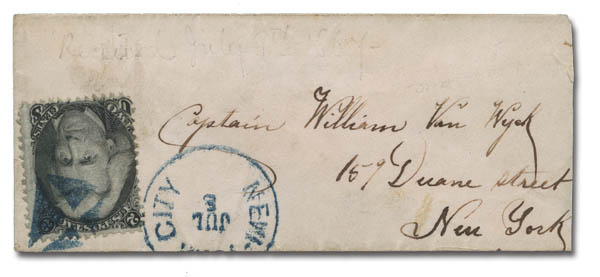 July
Captain William Van Wyck
159 Duane street
New York
NEW
CITY
JUL
3